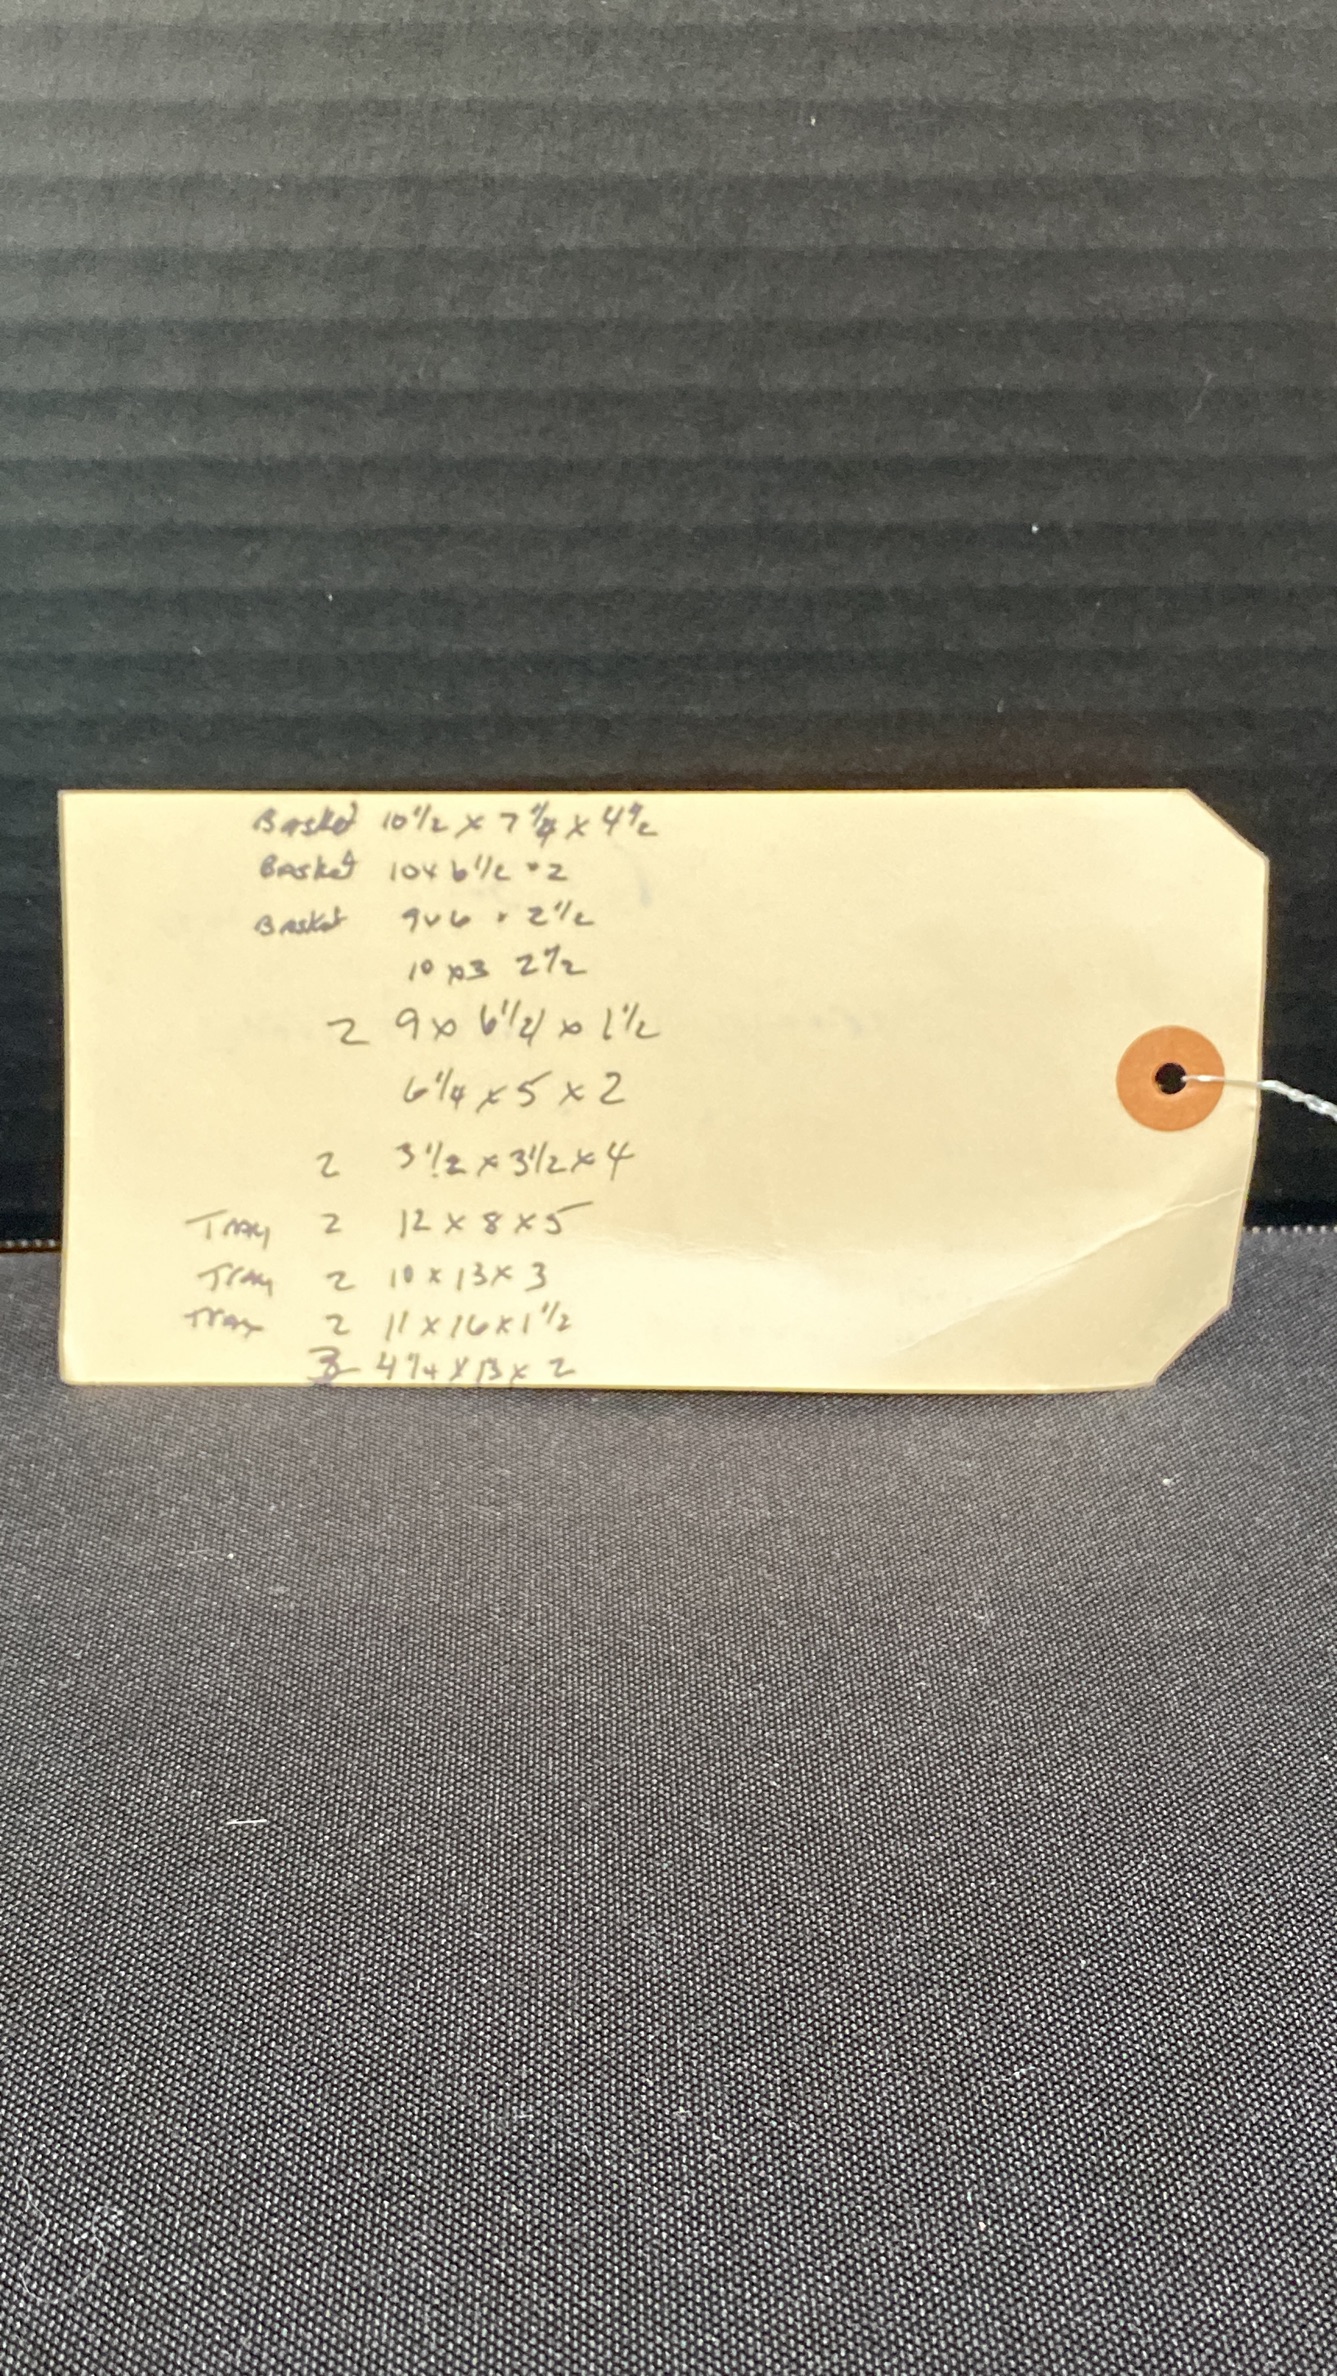 Basket 10 1/2 x 7 1/4 x 4 1/2
Basket 10 x 6 1/2 x 2
Basket 9 x 6 x 2 1/2
10 x 3 2 1/2
2 9 x 6 1/2 x 1 1/2
6 1/4 x 5 x 2
2 3 1/2 x 3 1/2 x 4
Tray 2 12 x 8 x 5
Tray 2 10 x 13 x 3
Tray 2 11 x 16 x 1 1/2
3 4 1/4 x 13 x 2